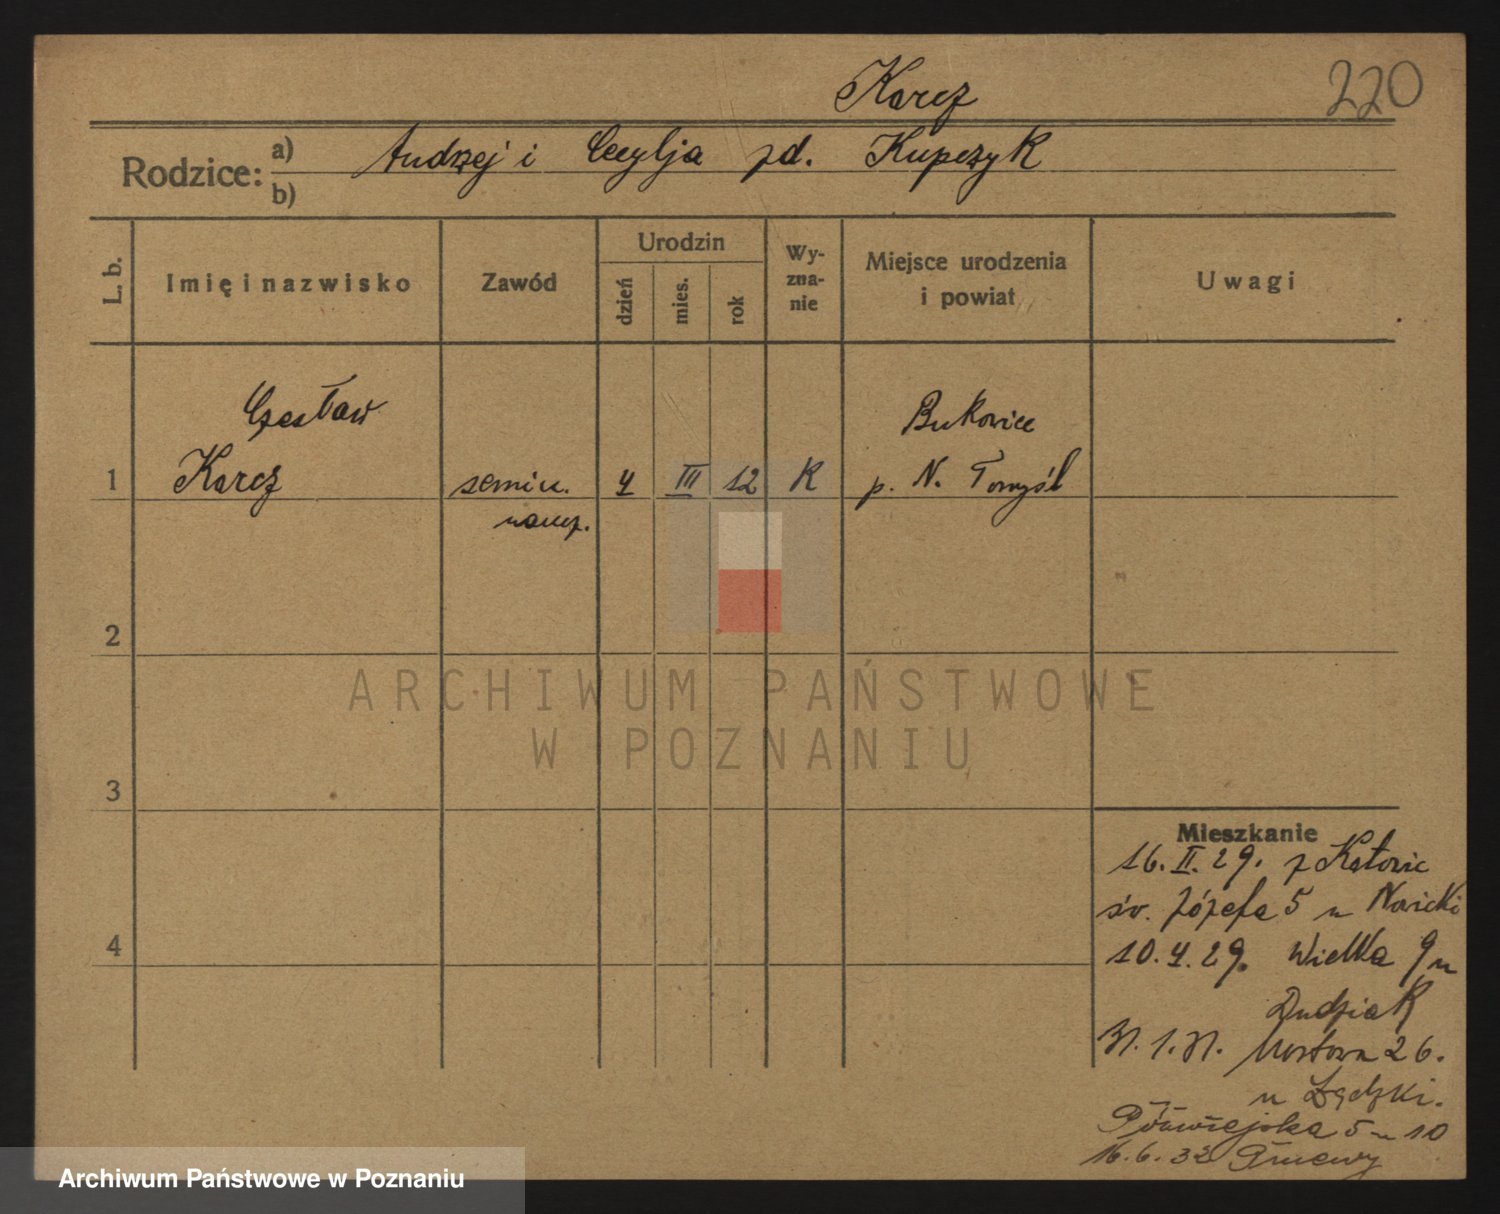 Karcz
220
Rodzice:
a) Andrzej i Cecylja zd. Kupczyk
b)
L. b.
Imię i nazwisko
Zawód
Urodzin
dzień
mies.
rok
Wy-
zna-
nie
Miejsce urodzenia
i powiat
Uwagi
Czesław
Bukowiec
1 Karcz semin. 4 III 12 K p. N. Tomyśl
naucz.
2
3
4
ARCHIWUM PAŃSTWOWE
W POZNANIU
Mieszkanie
16. II. 29. z Katowic
św. Józefa 5 u Nowicki
10. 4. 29. Wielka 9 u
Dudziak
Mostowa 26.
u Żądzki.
Półwiejska 5 10
16. 6. 32 Pniewy
Archiwum Państwowe w Poznaniu